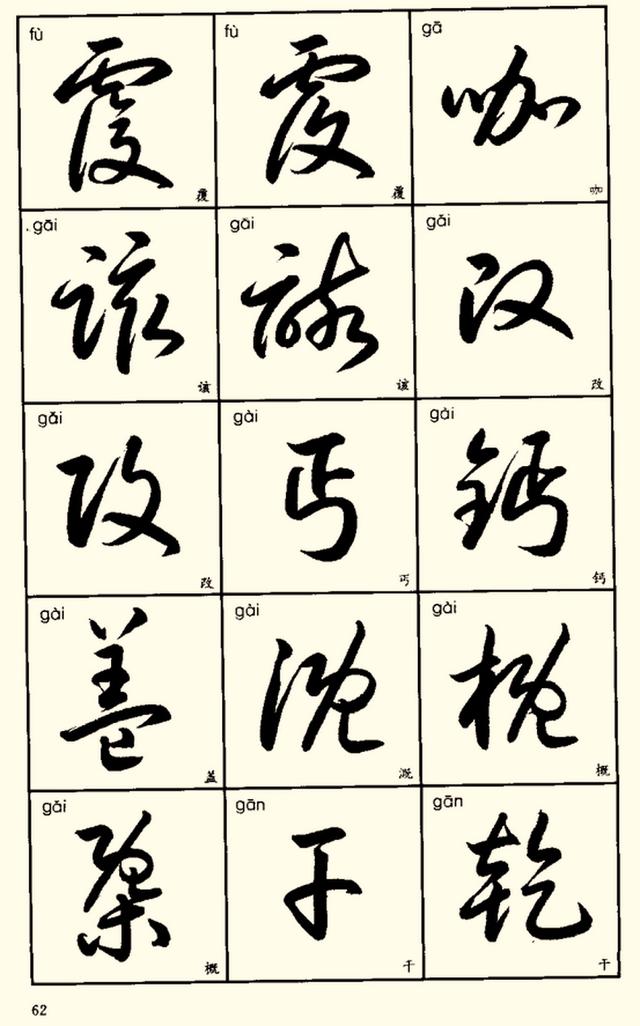 fù fù gā
覆 覆 咖
覆 覆 咖
gāi gāi gǎi
该 該 改
该 该 改
gǎi gài gài
改 丐 鈣
改 丐 钙
gài gài gài
蓋 溉 概
盖 溉 概
gǎi gān gān
槩 干 乾
概 干 干
62